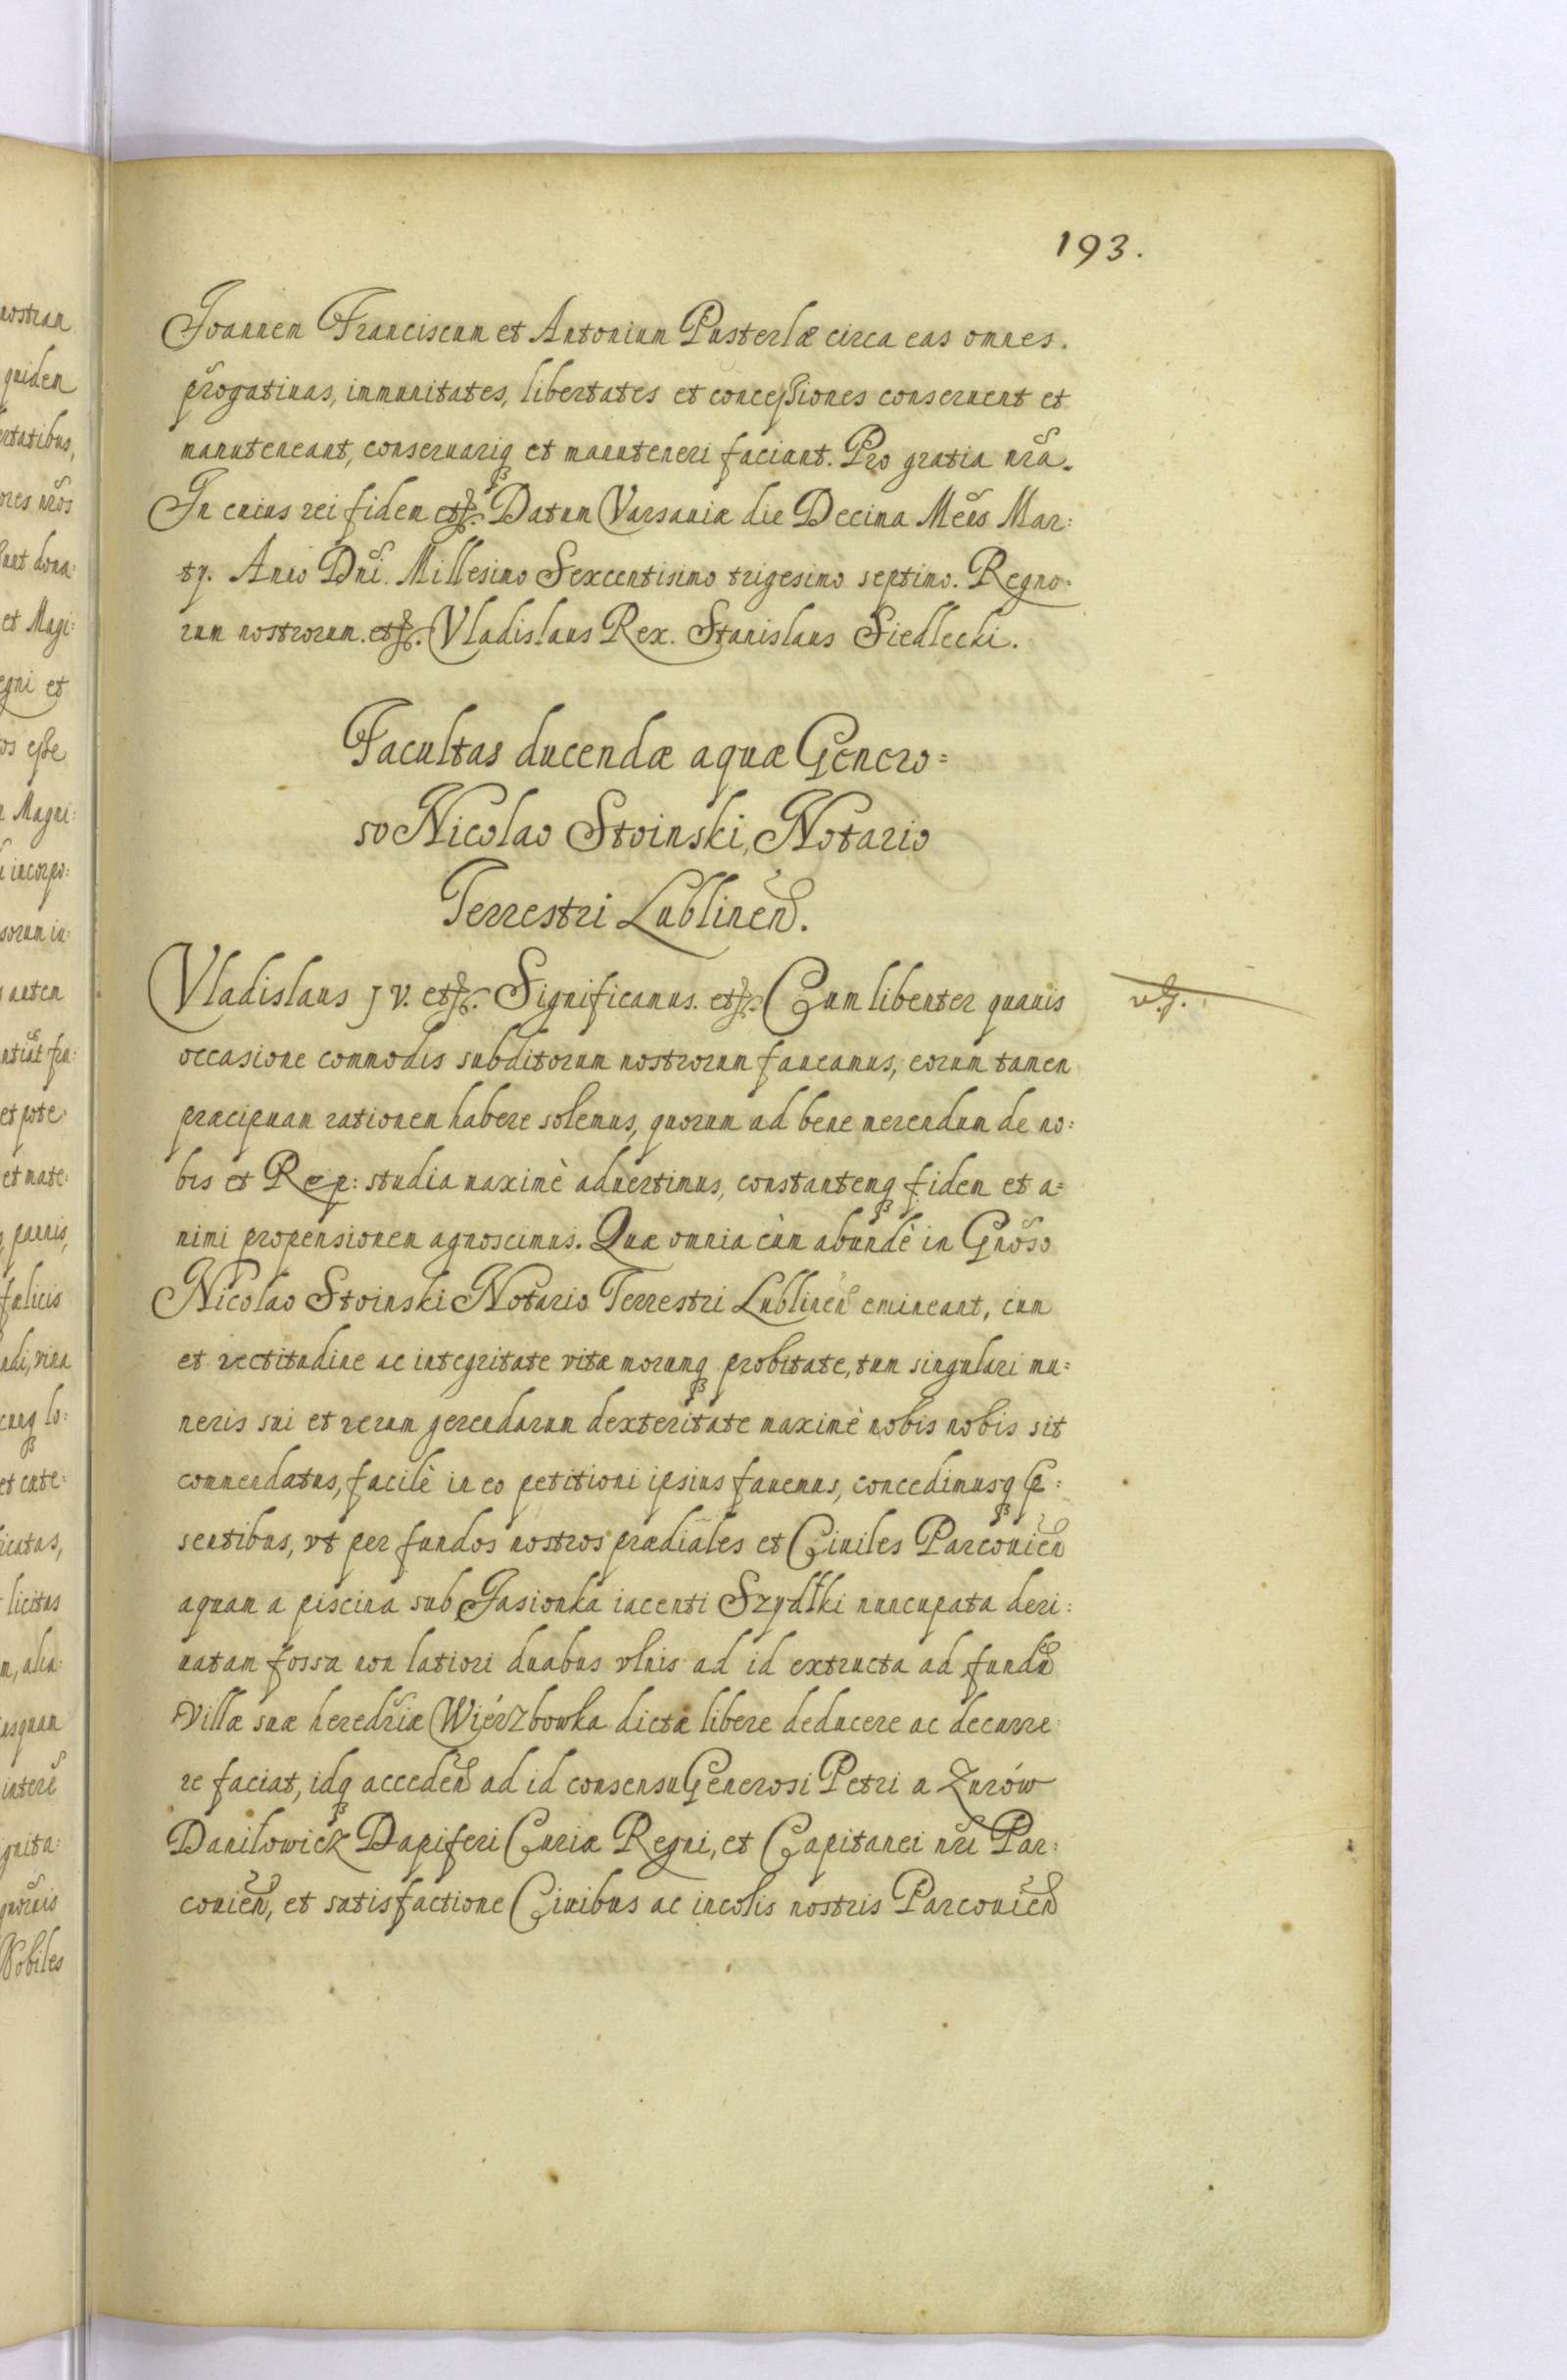 193.
Joannem Franciscum et Antonium Pusterlæ circa eas omnes.
p̃rogatiuas, immunitates, libertates et concessiones conseruent et
manuteneant, conseruariq et manuteneri faciant. Pro gratia nr̃a.
In cuius rei fidem etc. Datum Varsauiæ die Decima Men̄s Mar:
tij. Anno Dn̄i. Millesimo Sexcentisimo trigesimo septimo. Regno:
rum nostrorum. etc. Vladislaus Rex. Stanislaus Siedlecki.
Facultas ducendæ aquæ Genero=
so Nicolao Stoinski, Notario
Terrestri Lublinen̄.
Vladislaus IV. etc. Significamus. etc. Cum libenter quauis
occasione commodis subditorum nostrorum faueamus, eorum tamen
præcipuam rationem habere solemus, quorum ad bene merendum de no:
bis et Rep: studia maximè aduertimus, constantemq fidem et a=
nimi propensionem agnoscimus. Quæ omnia cùm abundè in Gnōso
Nicolao Stoinski Notario Terrestri Lublinen̄ emineant, cum
et rectitudine ac integritate vitæ morumq probitate, tum singulari mu=
neris sui et rerum gerendarum dexteritate maximè nobis nobis sit
commendatus, facilè in eo petitioni ipsius fauemus, concedimusq p̃:
sentibus, vt per fundos nostros prædiales et Ciuiles Parcouien̄
aquam a piscina sub Gasionka iacenti Szydłki nuncupata deri:
uatam fossa non latiori duabus vlnis ad id extructa ad fundū
Villæ suæ heredr̃iæ Wiérzbowka dictæ libere deducere ac decurre:
re faciat, idq acceden̄ ad id consensu Generosi Petri a Zurów
Danilowicz Dapiferi Curiæ Regni, et Capitanei nr̃i Par:
couien̄, et satisfactione Ciuibus ac incolis nostris Parcouien̄